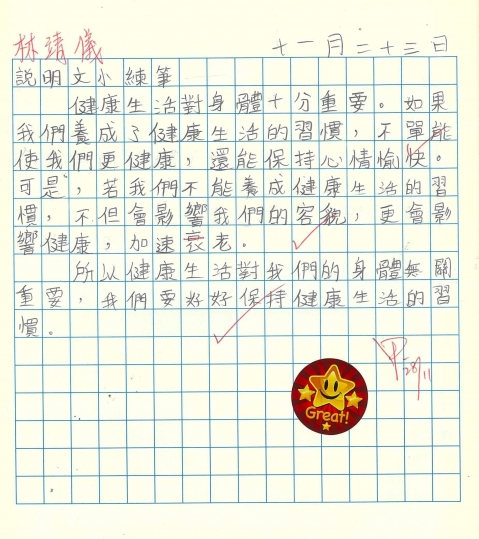 林靖儀
十一月二十三日
説明文小練筆
健康生活對身體十分重要。如果
我們養成了健康生活的習慣，不單能
使我們更健康，還能保持心情愉快。
可是，若我們不能養成健康生活的習
慣，不但會影響我們的容貌，更會影
響健康，加速衰老。
所以健康生活對我們的身體無關
重要，我們要好好保持健康生活的習
慣。
28/11
Great!